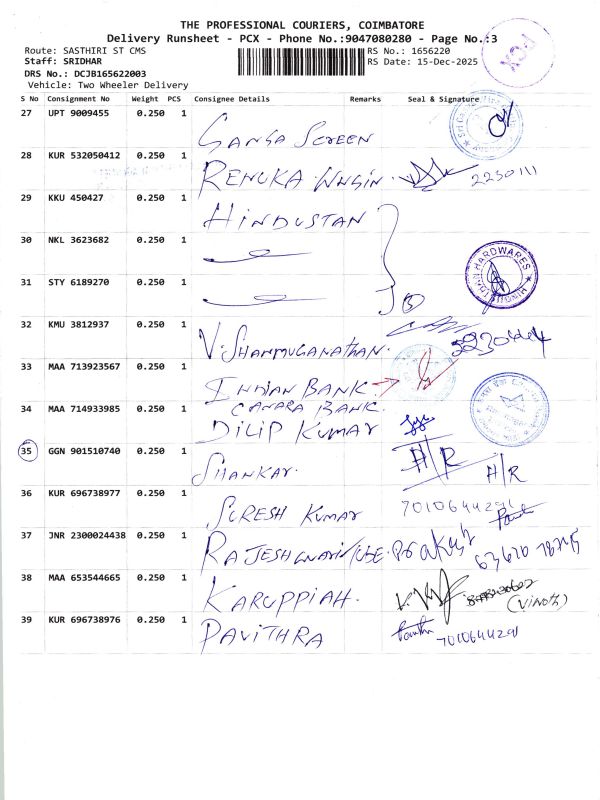 THE PROFESSIONAL COURIERS, COIMBATORE
Delivery Runsheet - PCX - Phone No.:9047080280 - Page No.:3
PCX
Route: SASTHIRI ST CMS
RS No.: 1656220
Staff: SRIDHAR
RS Date: 15-Dec-2025
DRS No.: DCJB165622003
Vehicle: Two Wheeler Delivery
S No Consignment No Weight PCS Consignee Details Remarks Seal & Signature
27 UPT 9009455 0.250 1
GANGA SCREEN
28 KUR 532050412 0.250 1
RENUKA
29 KKU 450427 0.250 1
HINDUSTAN
30 NKL 3623682 0.250 1
HARDWARES
31 STY 6189270 0.250 1
32 KMU 3812937 0.250 1
V. SHANMUGANATHAN.
33 MAA 713923567 0.250 1
INDIAN BANK →
CANARA BANK.
34 MAA 714933985 0.250 1
DILIP KUMAR
35 GGN 901510740 0.250 1
SHANKAR.
A/R A/R
36 KUR 696738977 0.250 1
SURESH KUMAR
7010644291
37 JNR 2300024438 0.250 1
38 MAA 653544665 0.250 1
KARUPPIAH.
(VINOTH)
39 KUR 696738976 0.250 1
PAVITHRA
7010644291